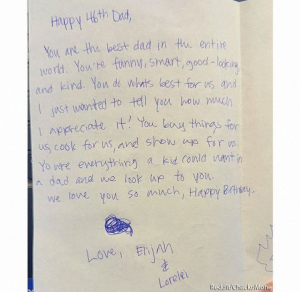 Happy 46th Dad,
You are the best dad in the entire
world. You're funny, smart, good-looking
and kind. You do whats best for us and
I just wanted to tell you how much
I appreciate it! You buy things for
us, cook for us, and show up for us.
You're everything a kid could want in
a dad and we look up to you.
we love you so much, Happy Birthday.
Love, Elijah
&
Lorelei